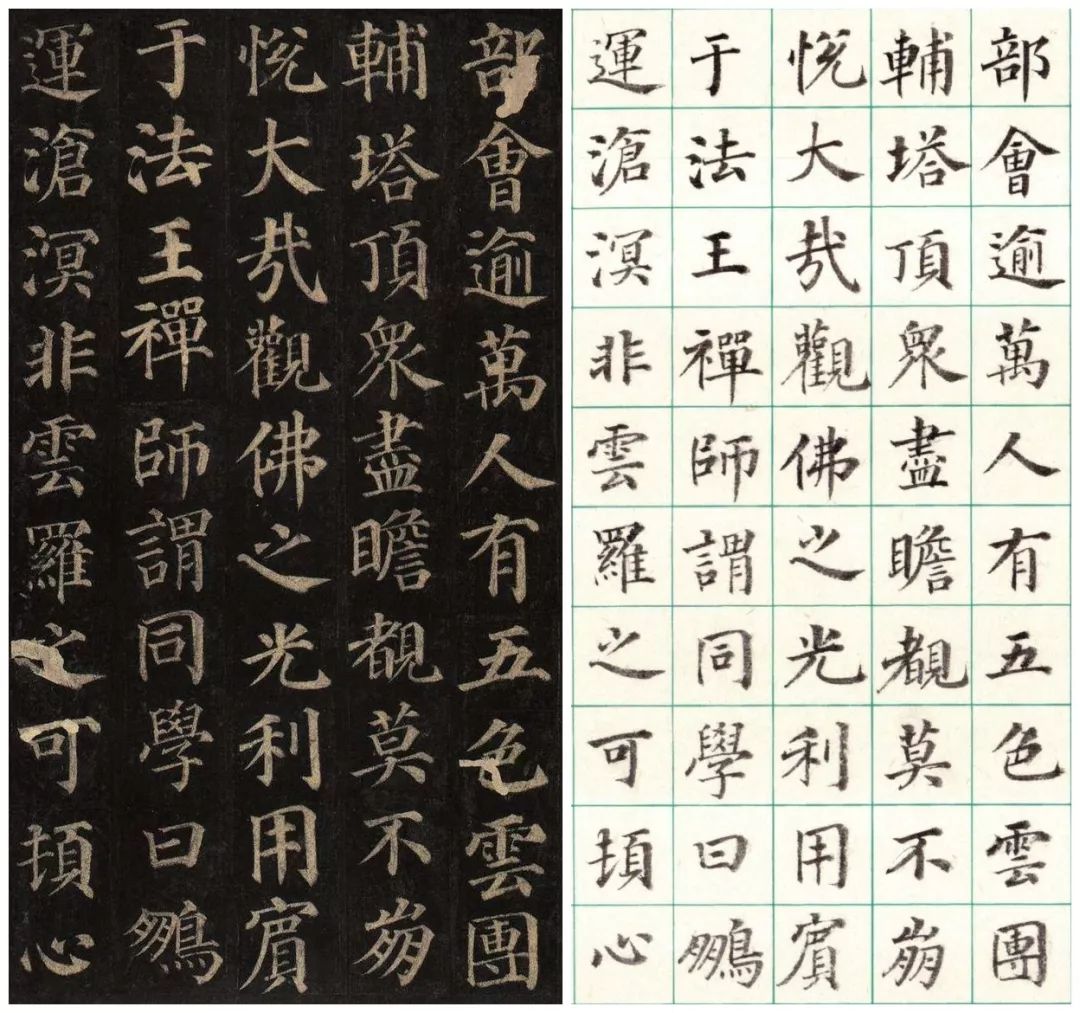 部會逾萬人有五色雲團
輔塔頂眾盡瞻覩莫不崩
悅大哉觀佛之光利用賓
于法王禪師謂同學曰鵬
運滄溟非雲羅之可頓心
部會逾萬人有五色雲團
輔塔頂眾盡瞻覩莫不崩
悅大哉觀佛之光利用賓
于法王禪師謂同學曰鵬
運滄溟非雲羅之可頓心